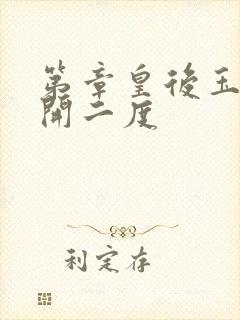 第章皇後玉
開二度
利定存